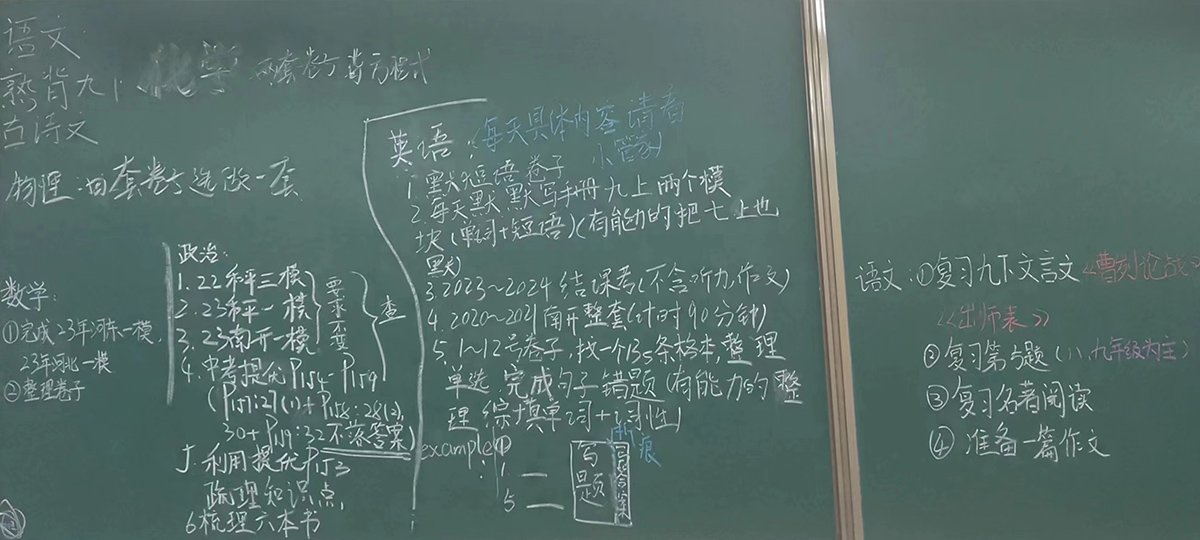 语文:
熟背九上
古诗文
化学 两套卷子 背方程式
物理:四套卷子选做一套
数学:
①完成23年河东一模,
23年河北一模
②整理卷子
政治:
1.22和平三模
2.23和平一模
3.23南开一模
要求不变
查
4.中考提优P154-P159
(P157:27(1)+P158:28(2),
30+P159:32不落答案)
5.利用提优P153
疏理知识点,
6梳理六本书
英语:(每天具体内容请看
小管家)
1.默短语卷子
2.每天默默写手册九上两个模
块(单词+短语)(有能力的把七上也
默)
3.2023~2024结课考(不含听力,作文)
4.2020~2021南开整套(计时90分钟)
5.1~12号卷子,找一个B5条格本,整理
单选,完成句子错题(有能力的整
理综填单词+词性)
example:
1
5
写题
写答案
折痕
语文:①复习九下文言文《曹刿论战》
《出师表》
②复习第5题(八、九年级为主)
③复习名著阅读
④准备一篇作文